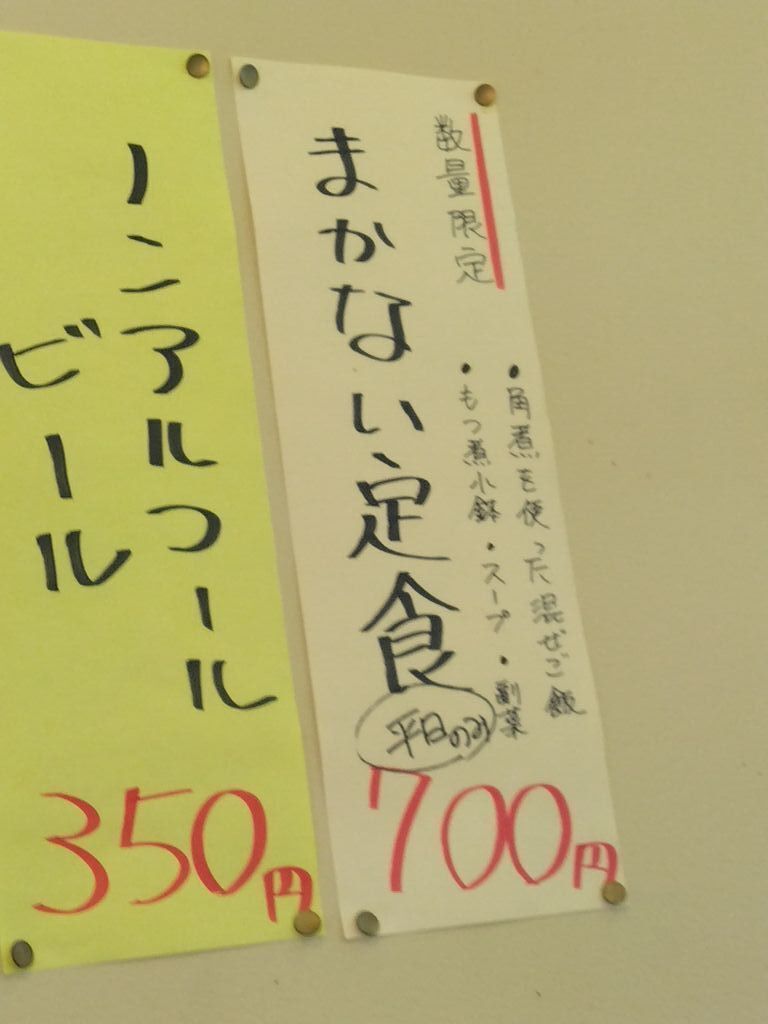 数量限定
・角煮を使った混ぜご飯
・もつ煮小鉢・スープ・副菜
まかない定食
平日のみ
700円
ノンアルコール
ビール
350円